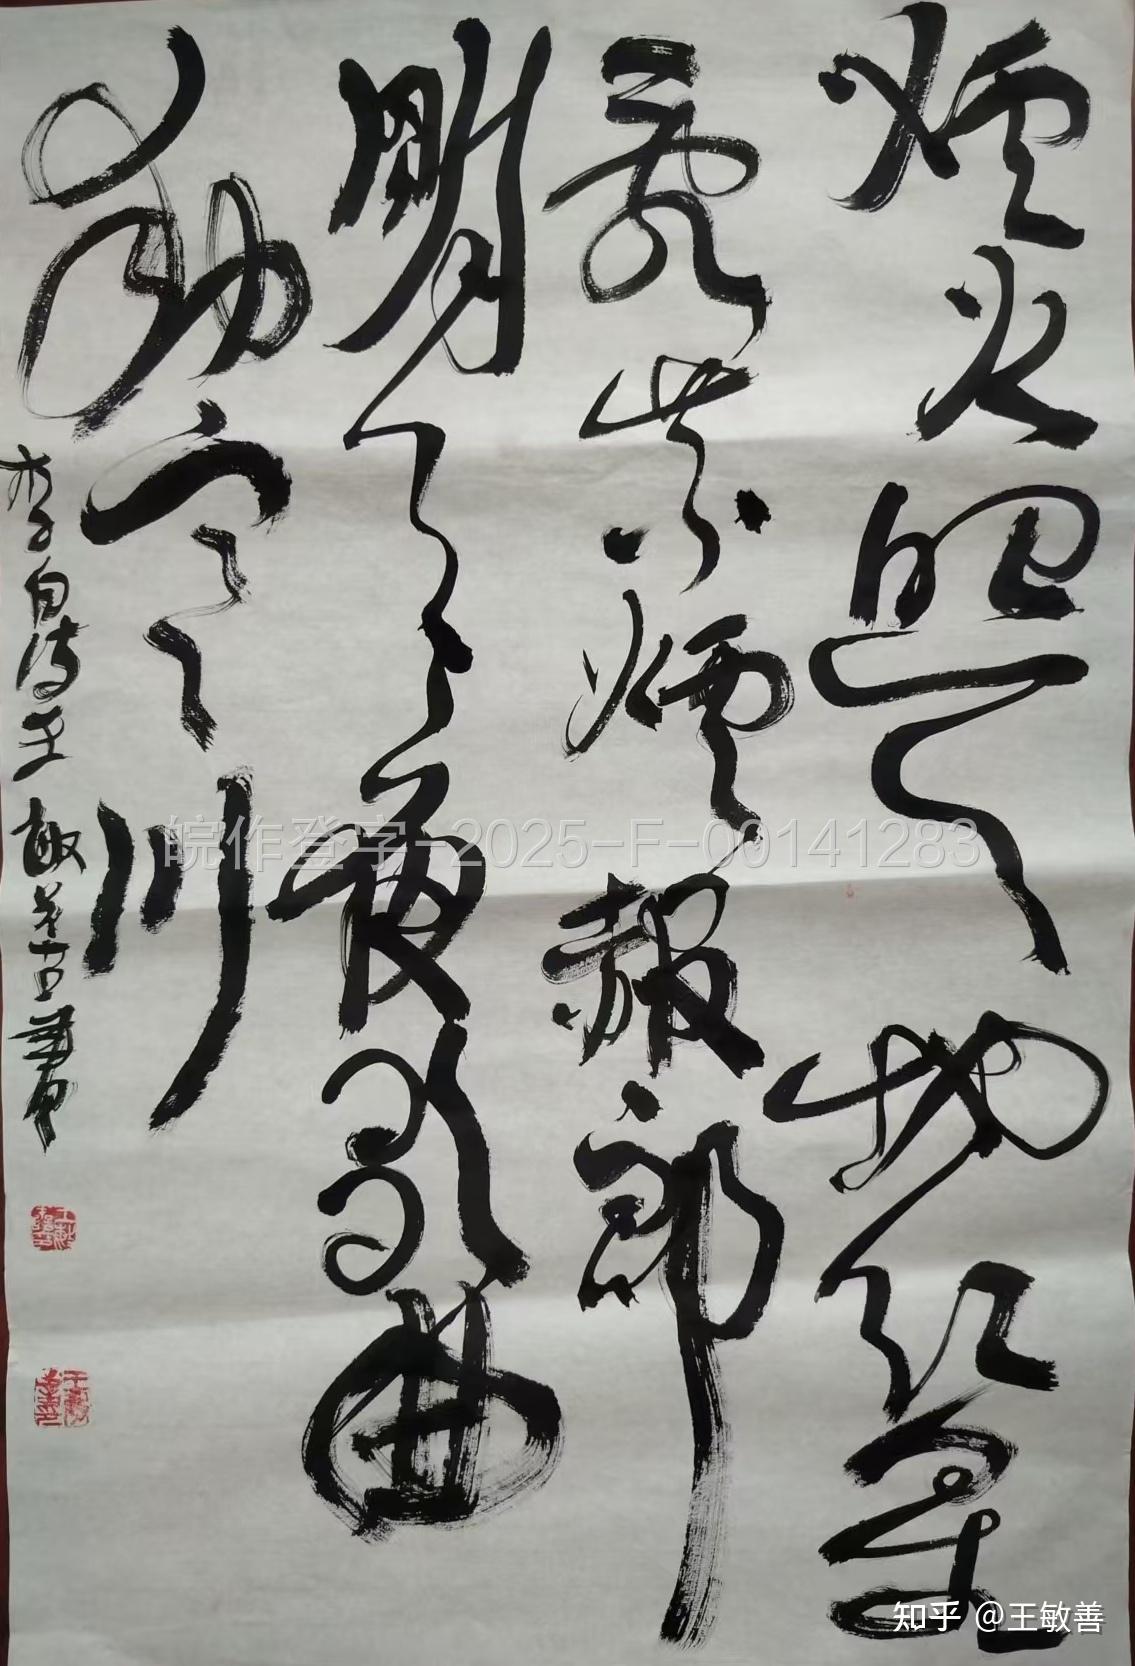 爐火照天地紅星
亂紫煙赧郎
明月夜歌曲
動寒川
李白诗王敏善書
皖作登字-2025-F-00141283
知乎 @王敏善